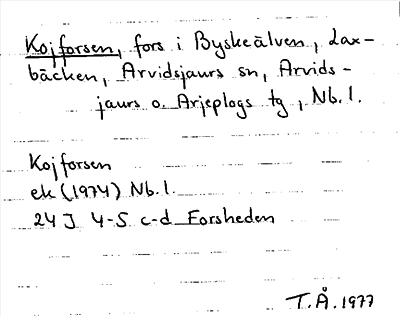 Kojforsen, fors i Byskeälven, Lax-
bäcken, Arvidsjaurs sn, Arvids-
jaurs o. Arjeplogs tg, Nb. l.
Kojforsen
ek (1974) Nb. l.
24 J 4-5 c-d Forsheden
T.Å. 1977